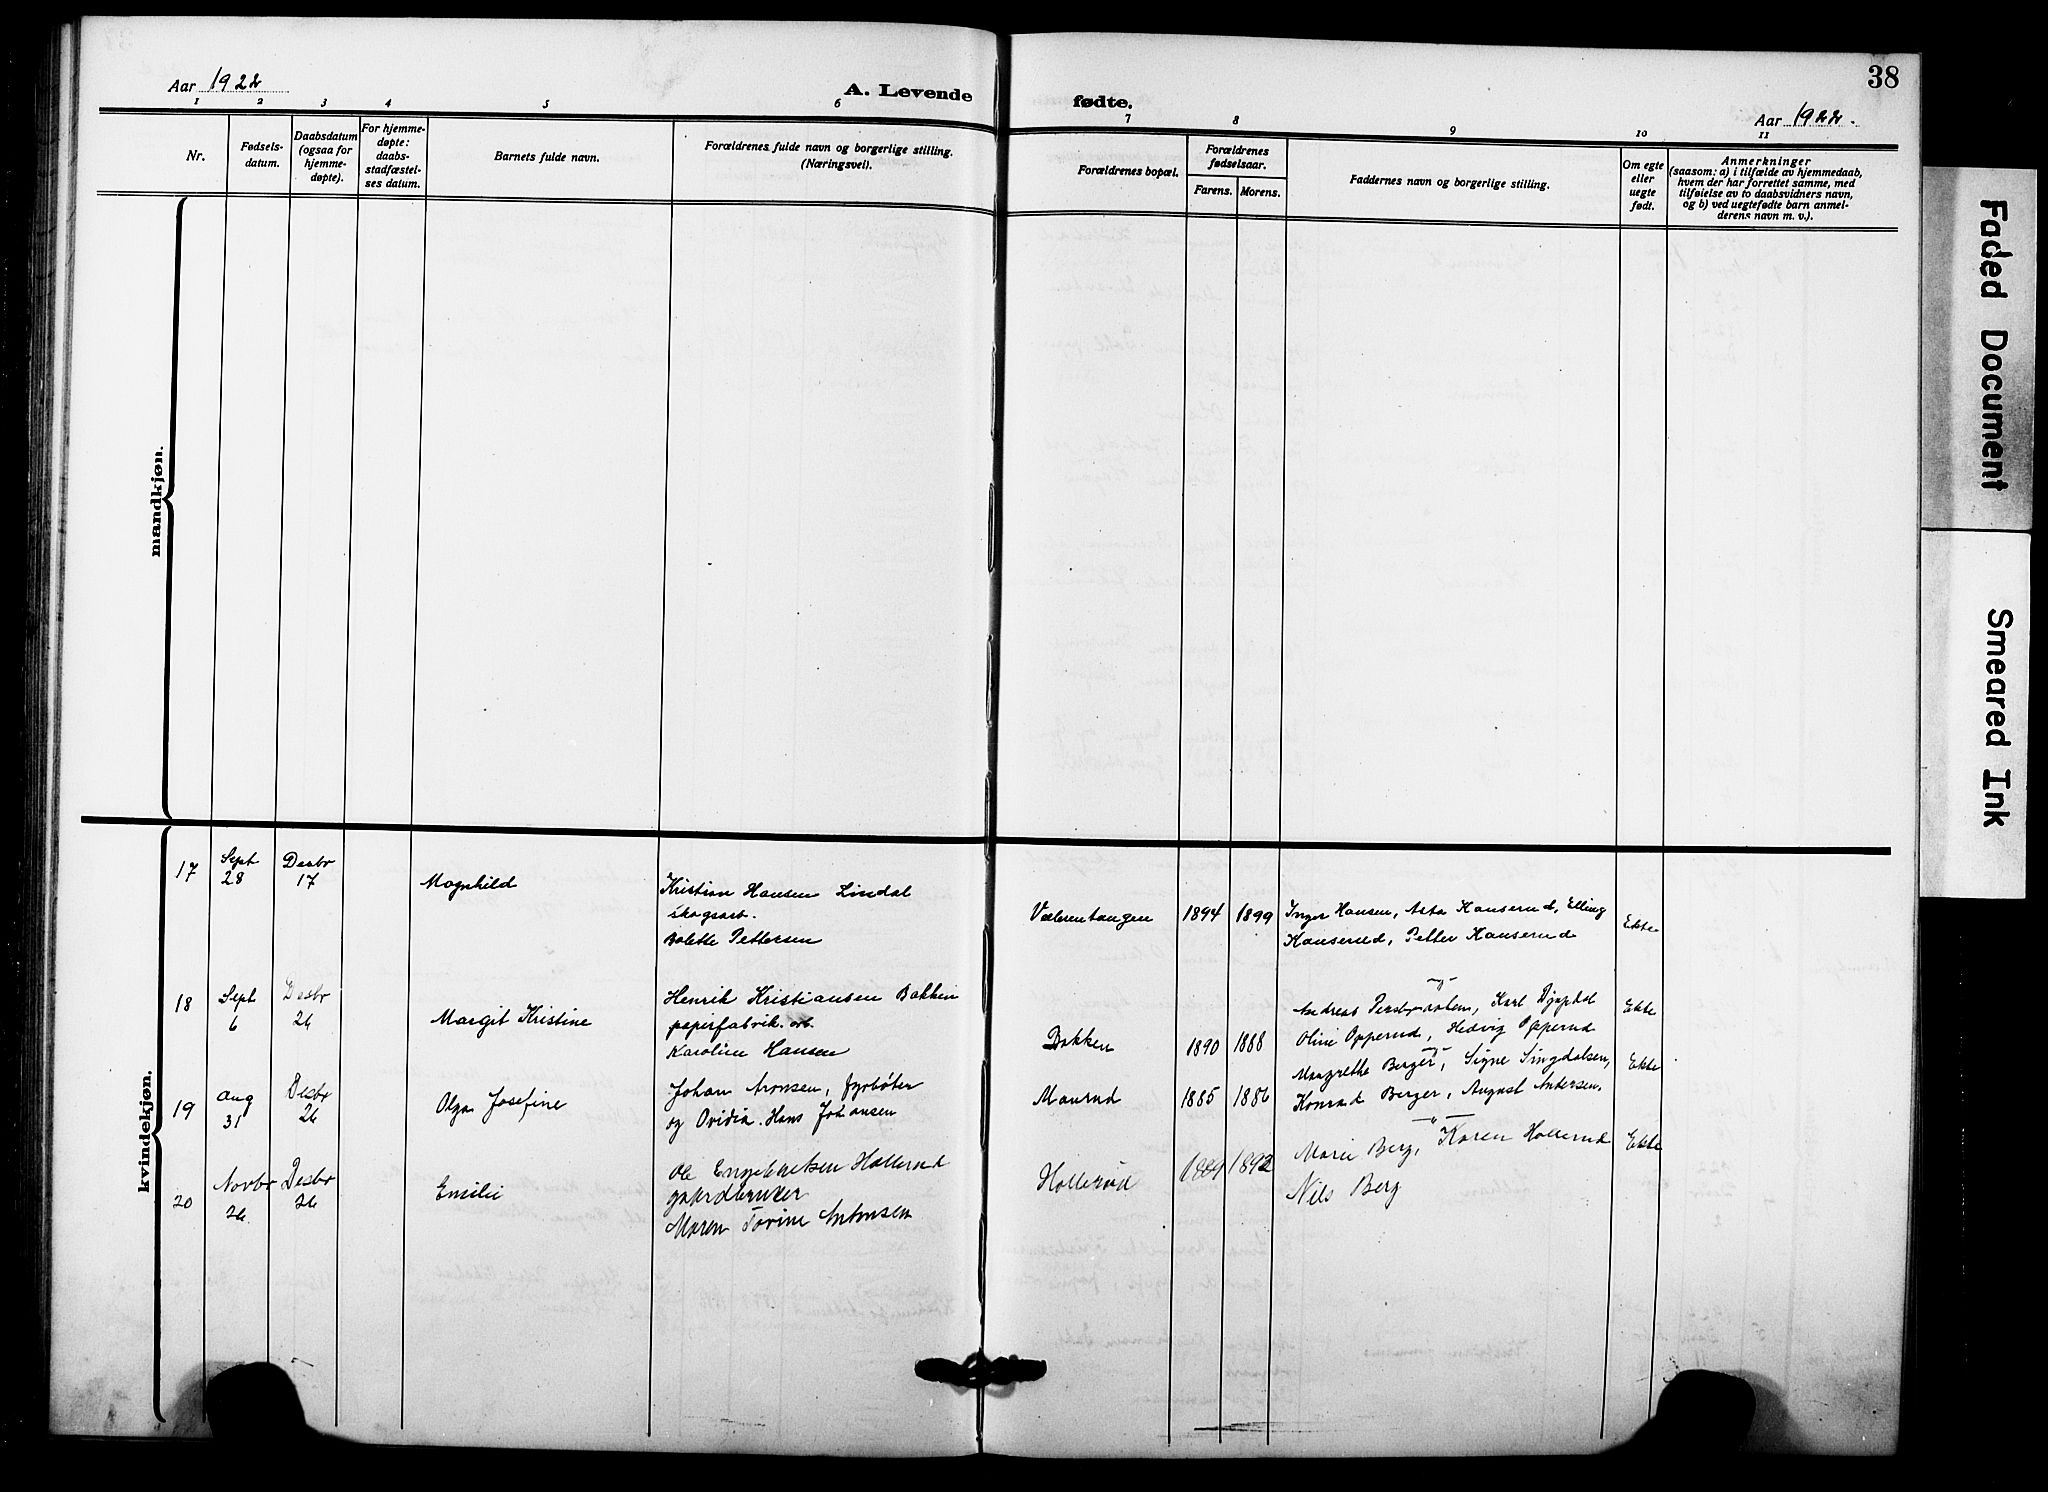 38
Aar 1922
A. Levende fødte.
Aar 1922.
1 2 3 4 5 6 7 8 9 10 11
Nr.
Fødsels-
datum.
Daabsdatum
(ogsaa for
hjemme-
døpte).
For hjemme-
døpte:
daabs-
stadfæstel-
ses datum.
Barnets fulde navn.
Forældrenes fulde navn og borgerlige stilling.
(Næringsvei).
Forældrenes bopæl.
Forældrenes
fødselsaar.
Farens. Morens.
Faddernes navn og borgerlige stilling.
Om egte
eller
uegte
født.
Anmerkninger
(saasom: a) i tilfælde av hjemmedaab,
hvem der har forrettet samme, med
tilføielse av to daabsvidners navn,
og b) ved uegtefødte barn anmel-
derens navn m. v.).
mandkjøn.
kvindekjøn.
17
Sept
28
Desbr
17
Magnhild
Kristian Hansen Lindal
skogsarb.
Bolette Pettersen
Vælerentangen
1894
1899
Inger Hansen, Asta Hanserud, Elling
Hanserud, Petter Hanserud
Ekte
18
Sept
6
Desbr
26
Margit Kristine
Henrik Kristiansen Bakken
papirfabrik. arb.
Karoline Hansen
Bakken
1890
1888
Andreas Karl
Oline Opperud, Hedvig Opperud
Ekte
19
Aug
31
Desbr
26
Olga Josefine
Johan Aronsen, fyrbøter
og Ovidia. Hans Johansen
Maurud
1885
1886
Margrethe Berger, Signe Singdalsen,
Konrad Berger, August Andersen.
Ekte
20
Novbr
26
Desbr
26
Emilie
Ole Engebretsen Hollerud
gaardbruker
Maren Torine Antonsen
Hollerud
1889
1892
Marie Berg, Karen Hollerud
Nils Berg
Ekte
Faded Document
Smeared Ink